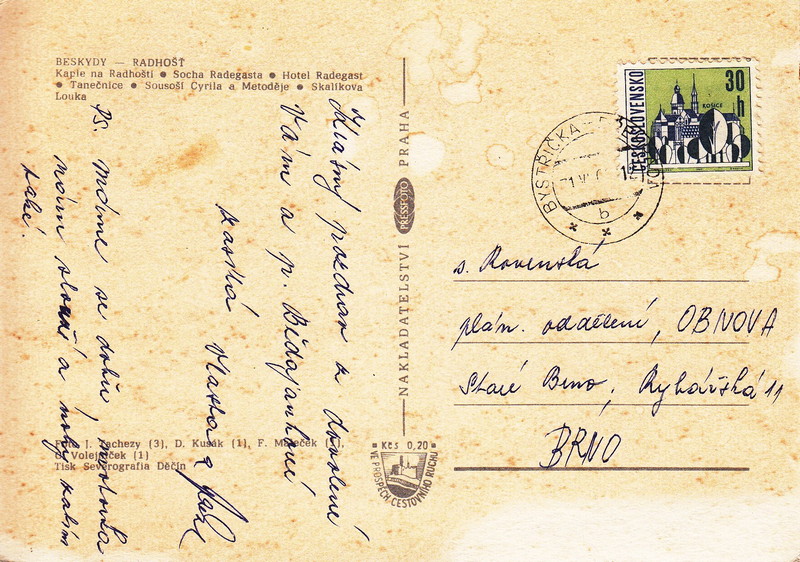 BESKYDY — RADHOŠŤ
Kaple na Radhošti ● Socha Radegasta ● Hotel Radegast
● Tanečnice ● Sousoší Cyrila a Metoděje ● Skalíkova
Louka
Krásný pozdrav z dovolené
Vám a p. Bědajankové
zaslá Vlasta a
PS. Máme se dobře, motorka
nám slouží a nohy zatím
také.
Foto J. Tachezy (3), D. Kusák (1), F.
(1)
Tisk Severografia Děčín
NAKLADATELSTVÍ PRESSFOTO PRAHA
Kčs 0,20
VE PROSPĚCH CESTOVNÍHO RUCHU
ČESKOSLOVENSKO
30 h
KOŠICE
BYSTŘIČKA
b
s. Rovenská
plán. oddělení, OBNOVA
Staré Brno, Rybářská 11
BRNO